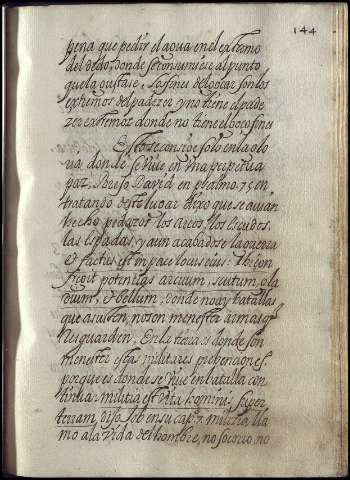 144
pena que pedir el agua en el extremo
del dedo, donde se consumiese al punto
que la gustase. Los fines del gozar son los
extremos del padezer y no tiene el pade
zer extremos donde no tiene el gozo fines
Esto se consige solo en la glo
ria donde se vive en una perpetua
paz. Por eso David en psalmo. 75 en
tratando deste lugar dixo que se avian
hecho pedazos los arcos, los escudos,
las espadas, y aun acabadose la guerra
& factus est in pace locus eius: Ibi con
fregit potentias arcuum, scutum, gla
dium, & bellum. Donde no ay batallas
que asusten, no son menester armas q
nos guarden. En la tierra es donde son
menester estas militares prebenciones,
porque es donde se vive en batalla con
tinua: militia est vita hominis super
terram, dijo Job en su cap. 7. militia lla
mo a la vida del hombre, no socorro, no